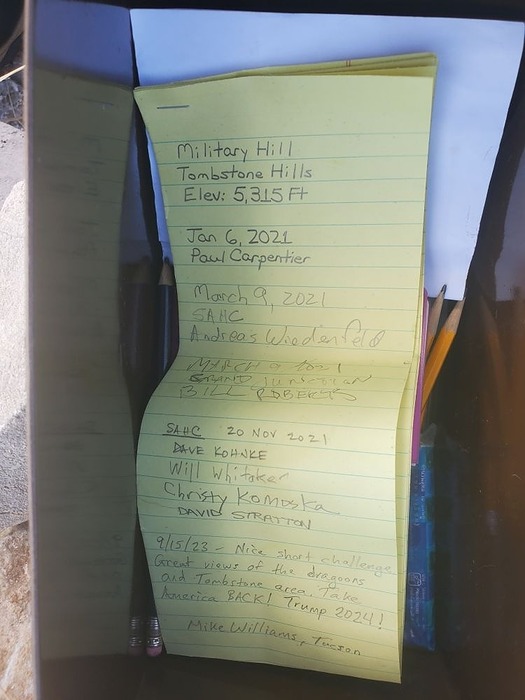 Military Hill
Tombstone Hills
Elev: 5,315 Ft
Jan 6, 2021
Paul Carpentier
March 9, 2021
SAHC
Andreas Wiedenfeld
MARCH 9 2021
GRAND JUNCTION
BILL ROBERTS
SAHC 20 NOV 2021
DAVE KOHNKE
Will Whitaker
Christy Komoska
DAVID STRATTON
9/15/23 - Nice short challenge.
Great views of the dragoons
and Tombstone area. Take
America BACK! Trump 2024!
Mike Williams, Tucson